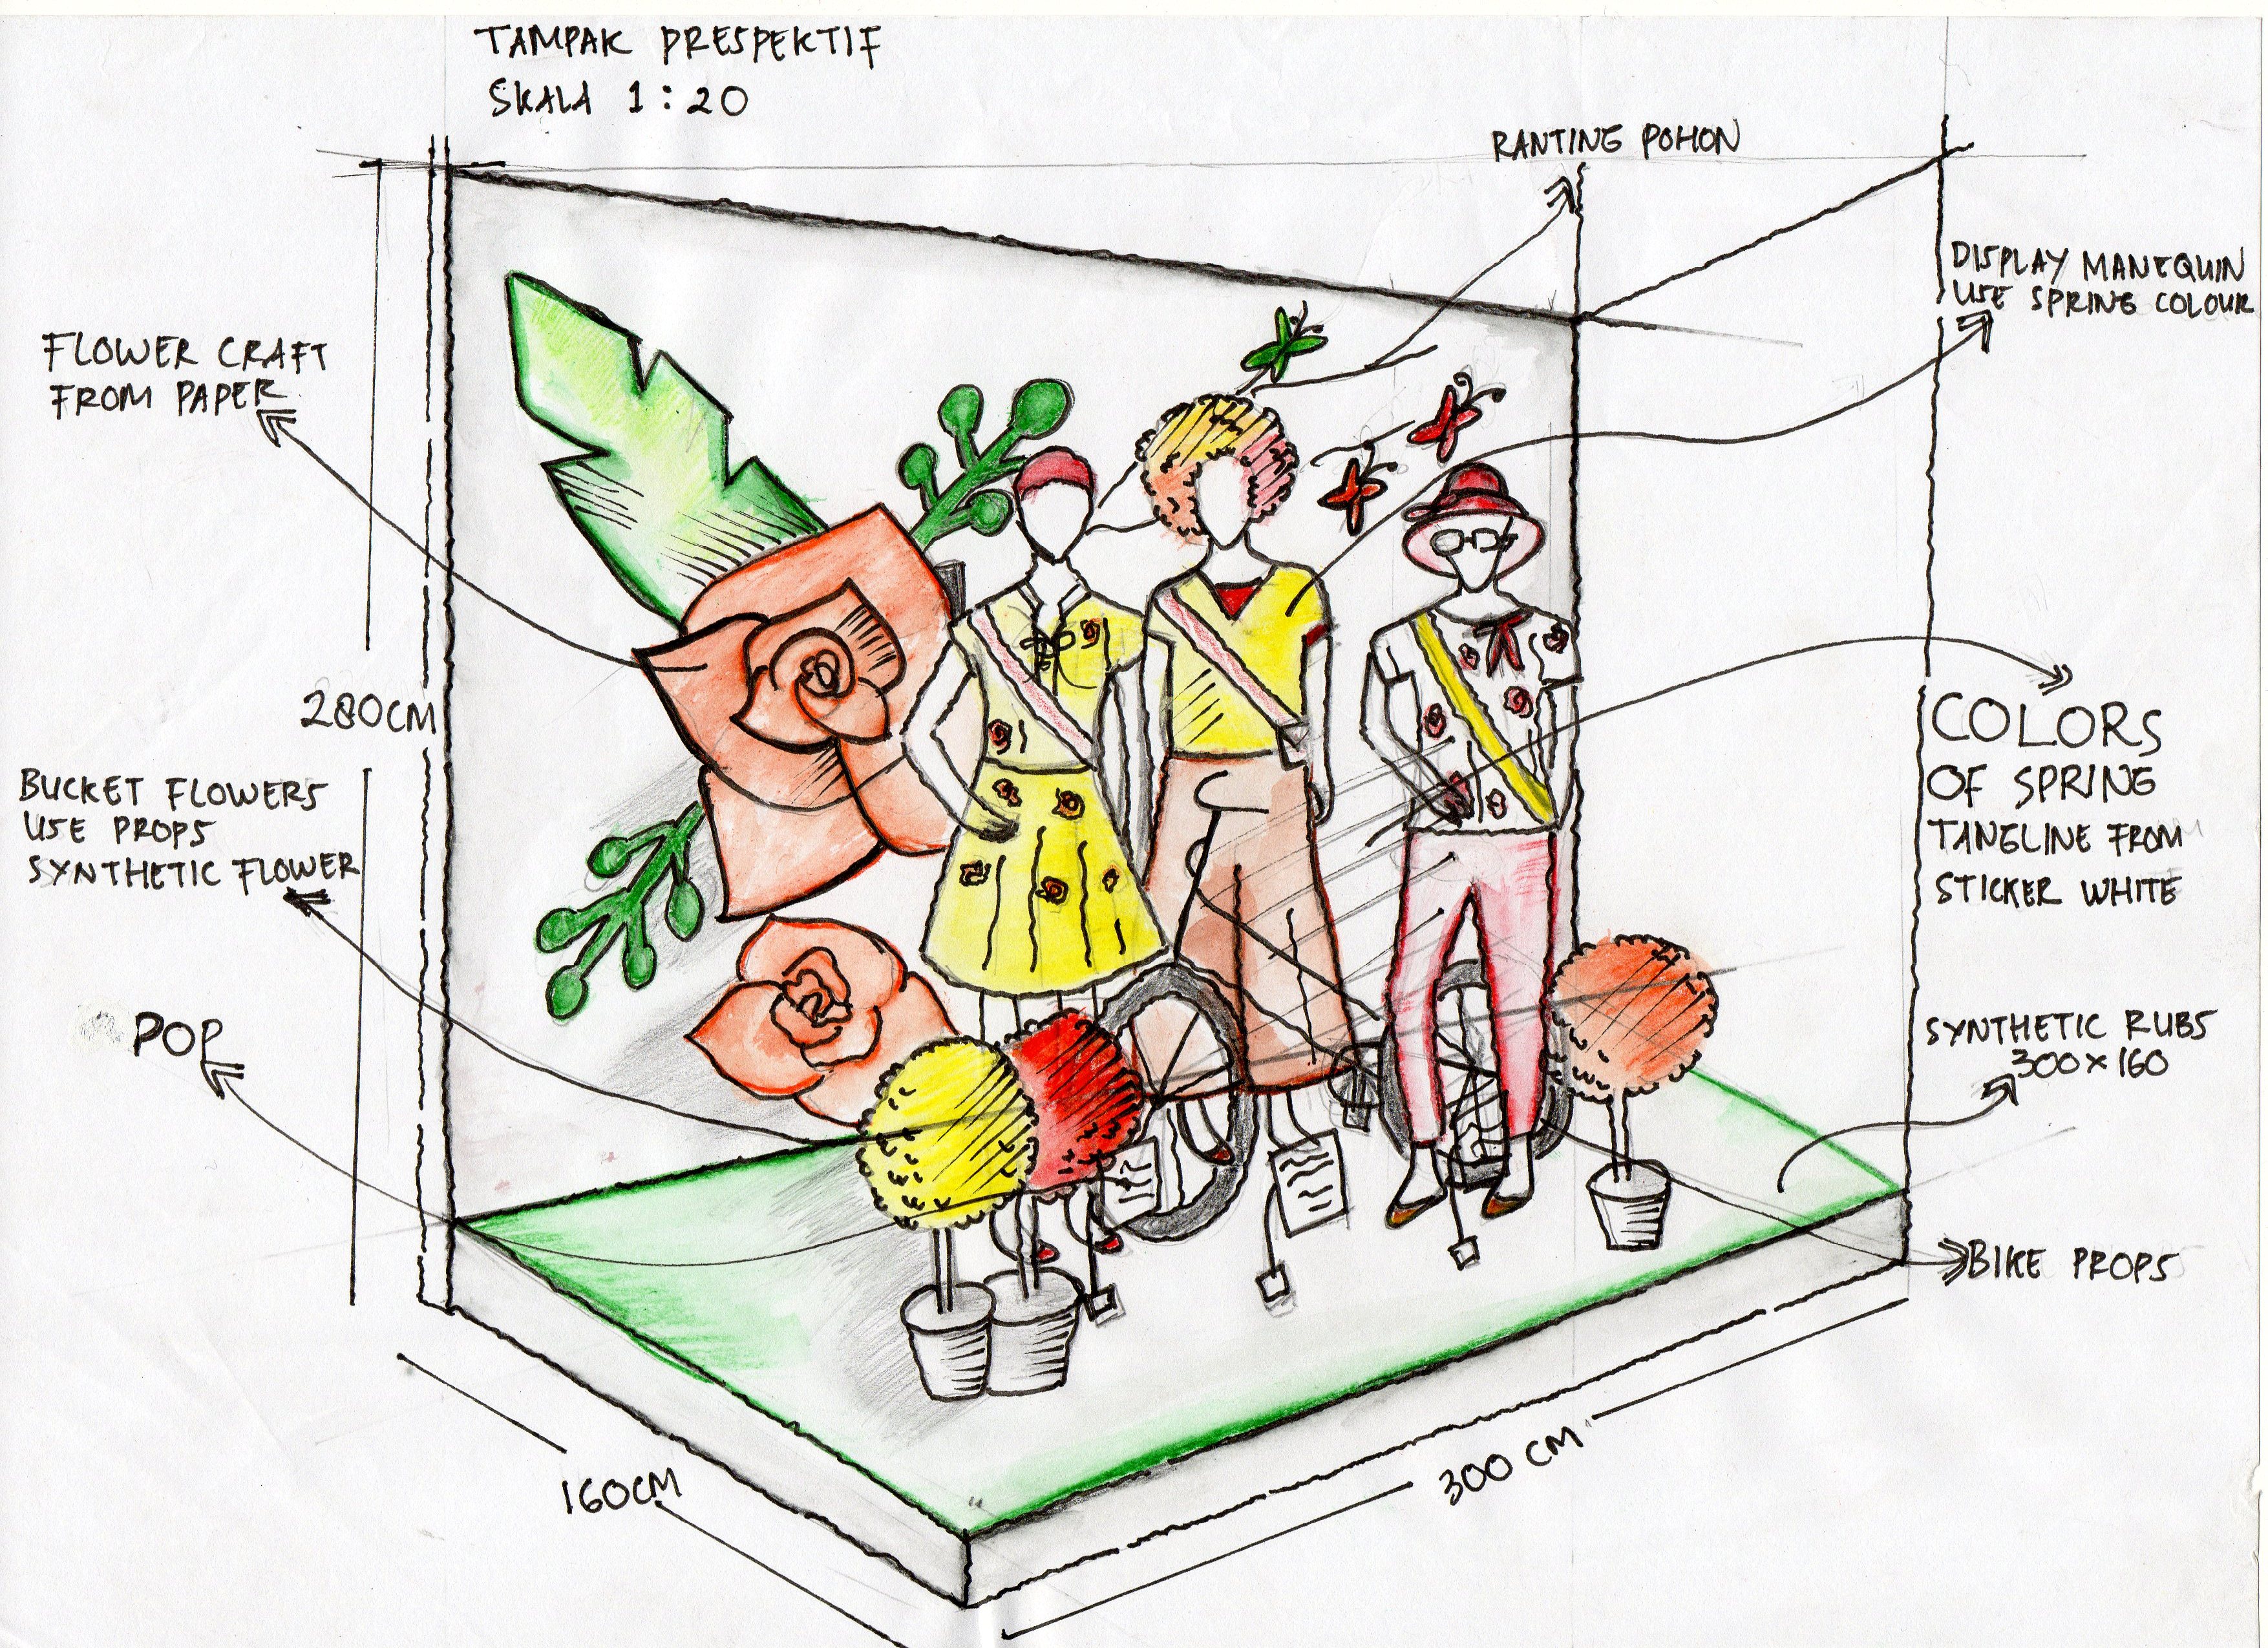 TAMPAK PRESPEKTIF
SKALA 1 : 20
RANTING POHON
DISPLAY MANEQUIN
USE SPRING COLOUR
FLOWER CRAFT
FROM PAPER
280CM
COLORS
OF SPRING
TANGLINE FROM
STICKER WHITE
BUCKET FLOWERS
USE PROPS
SYNTHETIC FLOWER
POP
SYNTHETIC RUBS
300 x 160
BIKE PROPS
160CM
300 CM